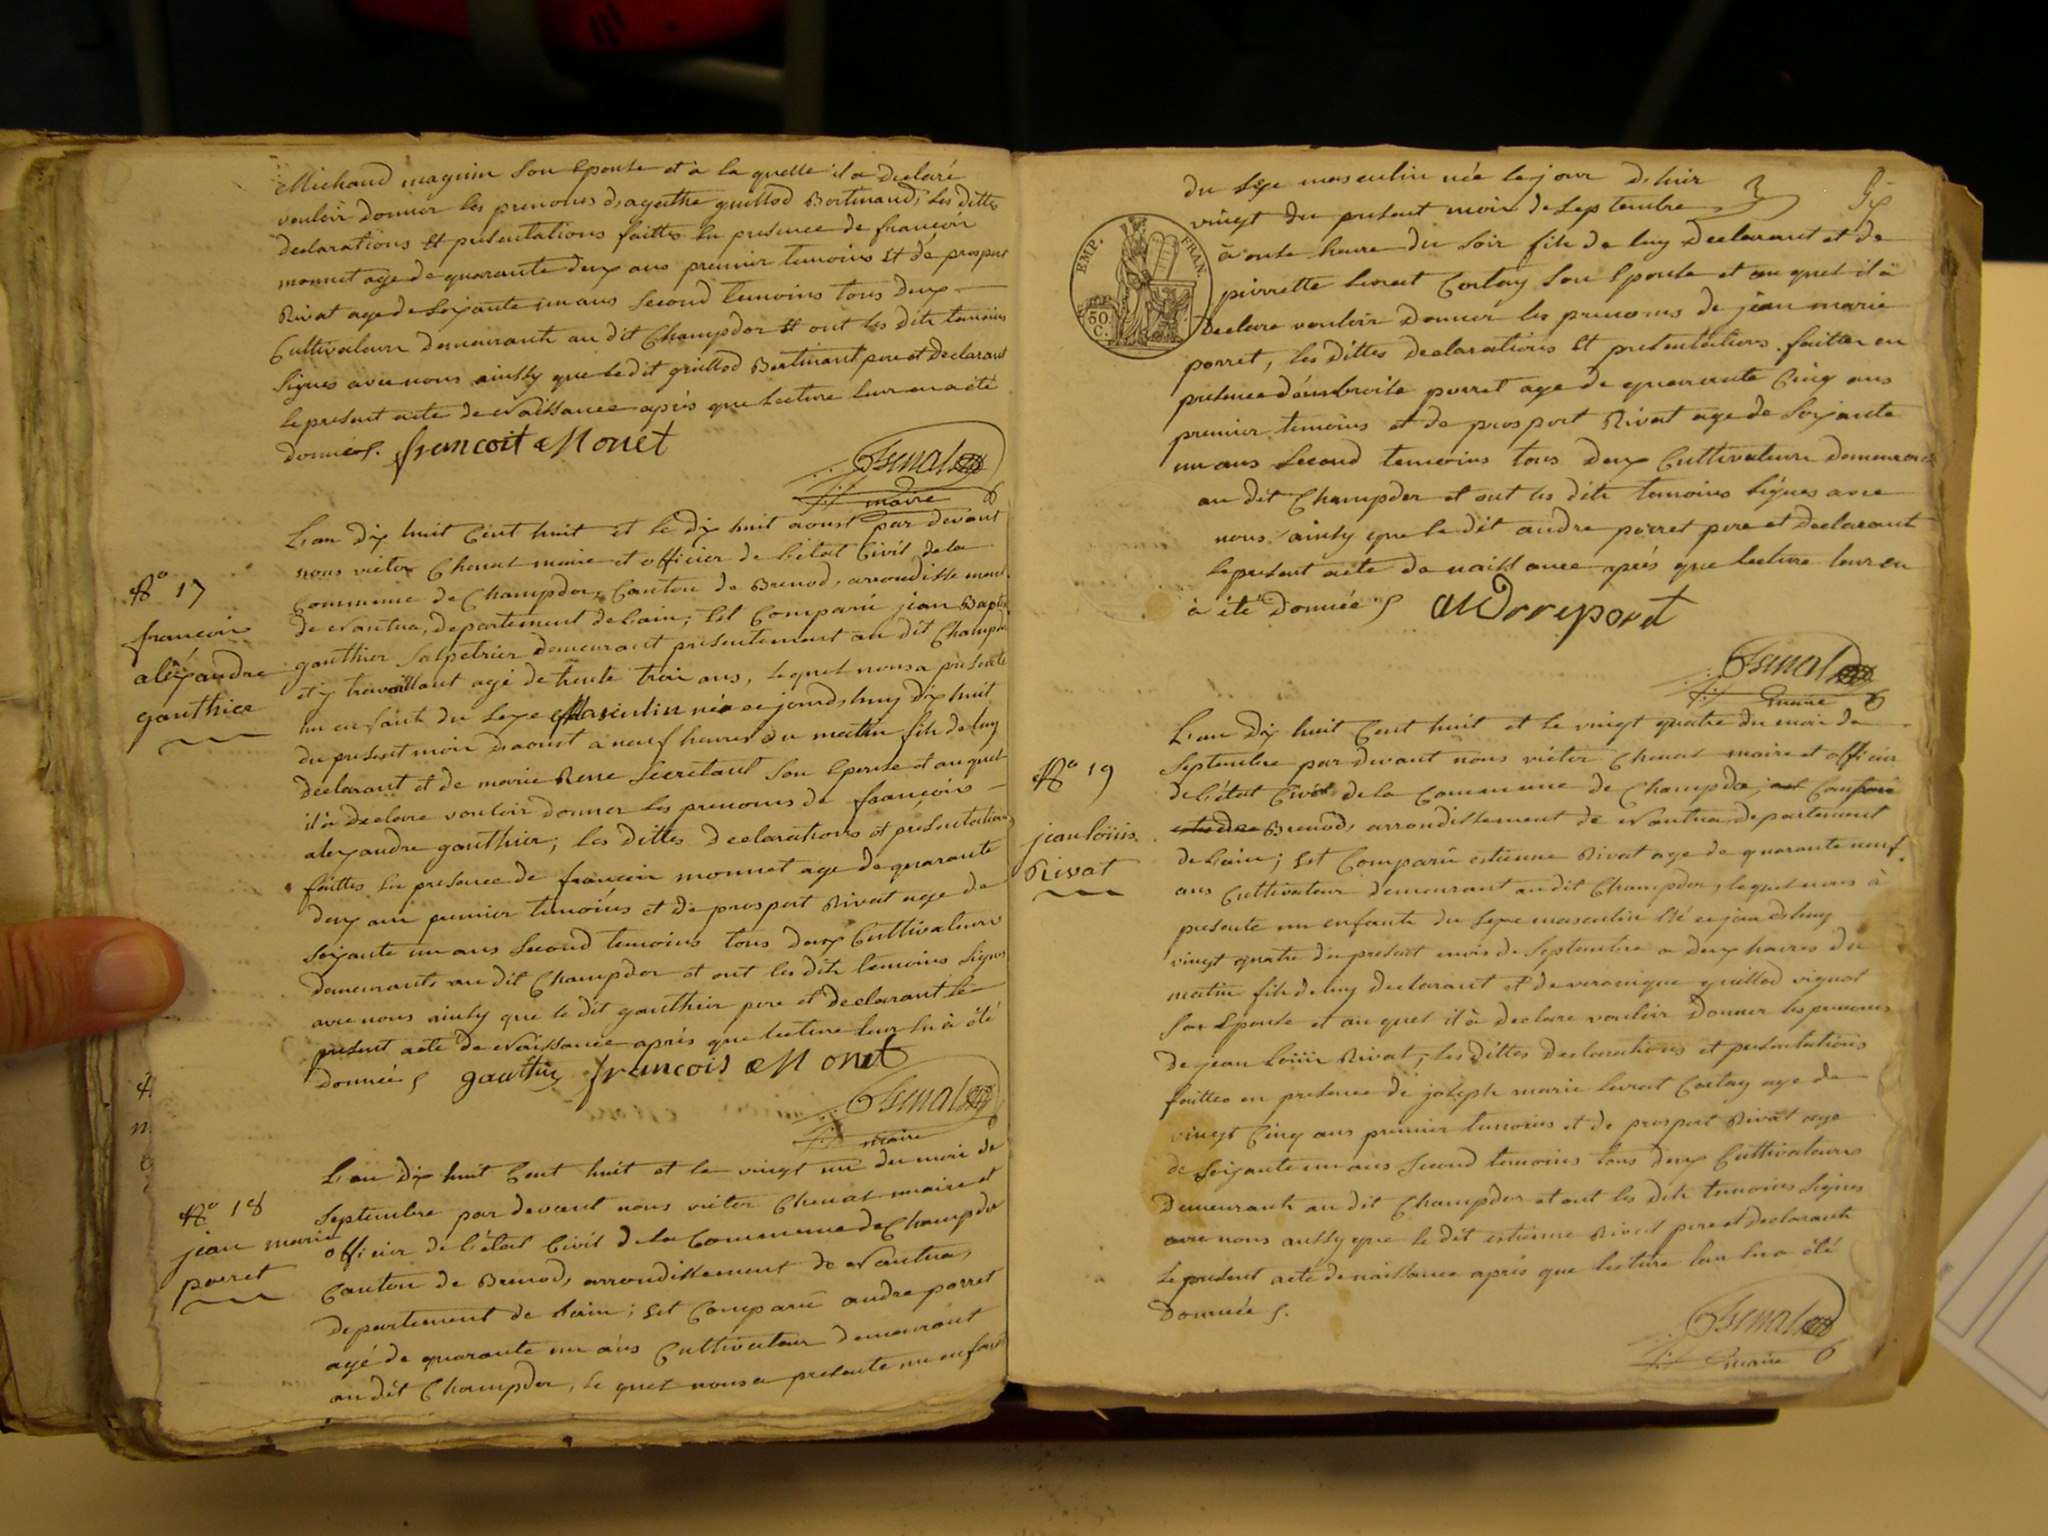 Michaud magnin son Epouse et à la quelle il a declaré
vouloir donner les prenoms d'agathe guillod Bertinand, les dittes
declarations et présentations faittes en presence de françois
monnet age de quarante deux ans premier temoins et de prospert
Rivat age de soixante un ans second temoins tous deux
Cultivateurs demeurants au dit Champdor et ont les dits temoins
signés avec nous ainssy que le dit guillod Bertinant pere et declarant
le present acte de naissance après que lecture leur en a été
donnée.
francoit Monet
maire
N° 17
françois
aléxandre
gauthier
L'an dix huit Cent huit et le dix huit aoust par devant
nous victor Chenat maire et officier de l'état Civil de la
Commune de Champdor, Canton de Brenod, arrondissement
de Nantua, departement de l'ain; est Comparü jean Bapte
gauthier salpetrier demeurant présentement au dit Champdor
et y travaillant agé de trente trois ans, lequel nous a présenté
un enfant du sexe Masculin née ce jourdshuy dix huit
du present mois daoust a neuf heures du matin fils de luy
declarant et de marie Rene secretant son Epouse et auquel
il à declare vouloir donner les prenoms de françois
alexandre gauthier; les dittes declarations et présentations
faittes en presence de françois monnet age de quarante
deux ans premier temoins et de prospert Rivat age de
soixante un ans second temoins tous deux Cultivateurs
demeurants au dit Champdor et ont les dits temoins signés
avec nous ainsy que le dit gauthier pere et declarant le
present acte de Naissance après que lecture leur en à été
donnée
gauthier francois Monet
maire
N° 18
jean marie
porret
L'an dix huit Cent huit et le vingt un du mois de
septembre par devant nous victor Chenat maire et
officier de l'état Civil de la Commune de Champdor
Canton de Brenod, arrondissement de Nantua,
departement de l'ain; est Comparü andre porret
agé de quarante un ans Cultivateur demeurant
au dit Champdor, le quel nous a présenté un enfant
du sexe masculin née le jour d'hier
vingt du present mois de septembre
à onse heure du soir fils de luy declarant et de
pierrette levrat Cortay son Epouse et au quel il à
declare vouloir donner les prenoms de jean marie
porret, les dittes declarations et présentations faittes en
presence d'ambroise porret age de quarante Cinq ans
premier temoins et de prospert Rivat age de soixante
un ans second temoins tous deux Cultivateurs demeurants
au dit Champdor et ont les dits temoins signes avec
nous ainsy que le dit andre porret pere et declarant
le present acte de naissance après que lecture leur en
à été donnée
EMP. FRAN.
50
C.
maire
N° 19
jean loüis
Rivat
L'an dix huit Cent huit et le vingt quatre du mois de
septembre par devant nous victor Chenat maire et officier
de l'état Civil de la Commune de Champdor, est Comparü
Brenod, arrondissement de Nantua departement
de l'ain; est Comparü estienne Rivat age de quarante neuf
ans Cultivateur demeurant au dit Champdor, lequel nous à
présenté un enfants du sexe masculin né ce jourdshuy
vingt quatre du present mois de septembre a deux heures du
matin fils de luy declarant et de veronique guillod vignat
son Epouse et au quel il à declare vouloir donner les prenoms
de jean loüis Rivat, les dittes declarations et présentations
faittes en presence de joseph marie levrat Cortay age de
vingt Cinq ans premier temoins et de prospert Rivat age
de soixante un ans second temoins tous deux Cultivateurs
demeurants au dit Champdor et ont les dits temoins signes
avec nous aussy que le dit estienne Rivat pere et declarants
le present acte de naissance après que lecture leur en a été
donnée
maire